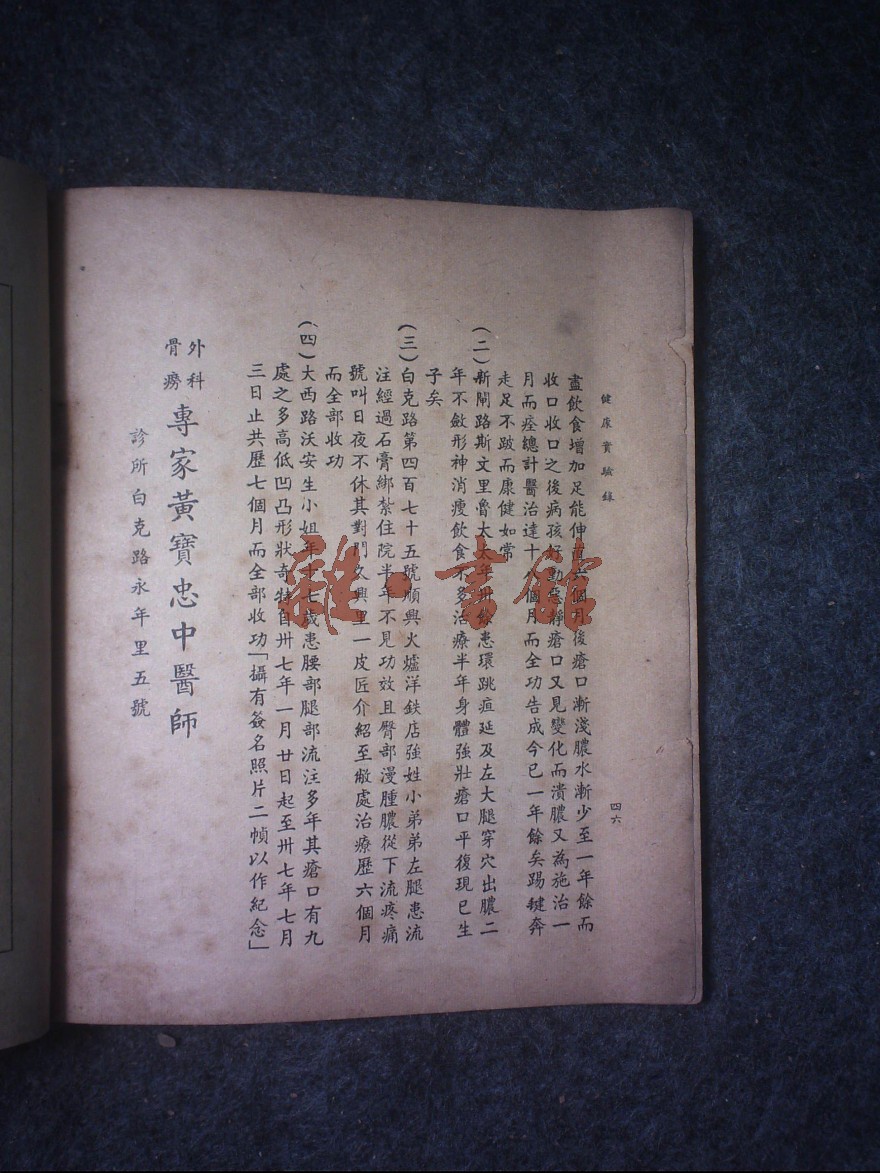 健康實驗錄
四六
盡飲食增加足能伸直六個月後瘡口漸淺膿水漸少至一年餘而
收口收口之後病孩好動惡靜瘡口又見變化而潰膿又為施治一
月而痊總計醫治達十 個月而全功告成今已一年餘矣踢毽奔
走足不跛而康健如常
(二)新閘路斯文里魯太太年卅餘患環跳疽延及左大腿穿穴出膿二
年不斂形神消瘦飲食不多治療半年身體強壯瘡口平復現已生
子矣
(三)白克路第四百七十五號順興火爐洋鉄店強姓小弟弟左腿患流
注經過石膏綁紮住院半年不見功效且臀部漫腫膿從下流疼痛
號叫日夜不休其對門久興里一皮匠介紹至敝處治療歷六個月
而全部收功
(四)大西路沃安生小姐年十七歲患腰部腿部流注多年其瘡口有九
處之多高低凹凸形狀奇特自卅七年一月廿日起至卅七年七月
三日止共歷七個月而全部收功「攝有簽名照片二幀以作紀念」
外科
骨癆
專家黃寶忠中醫師
診所白克路永年里五號
雜·書館